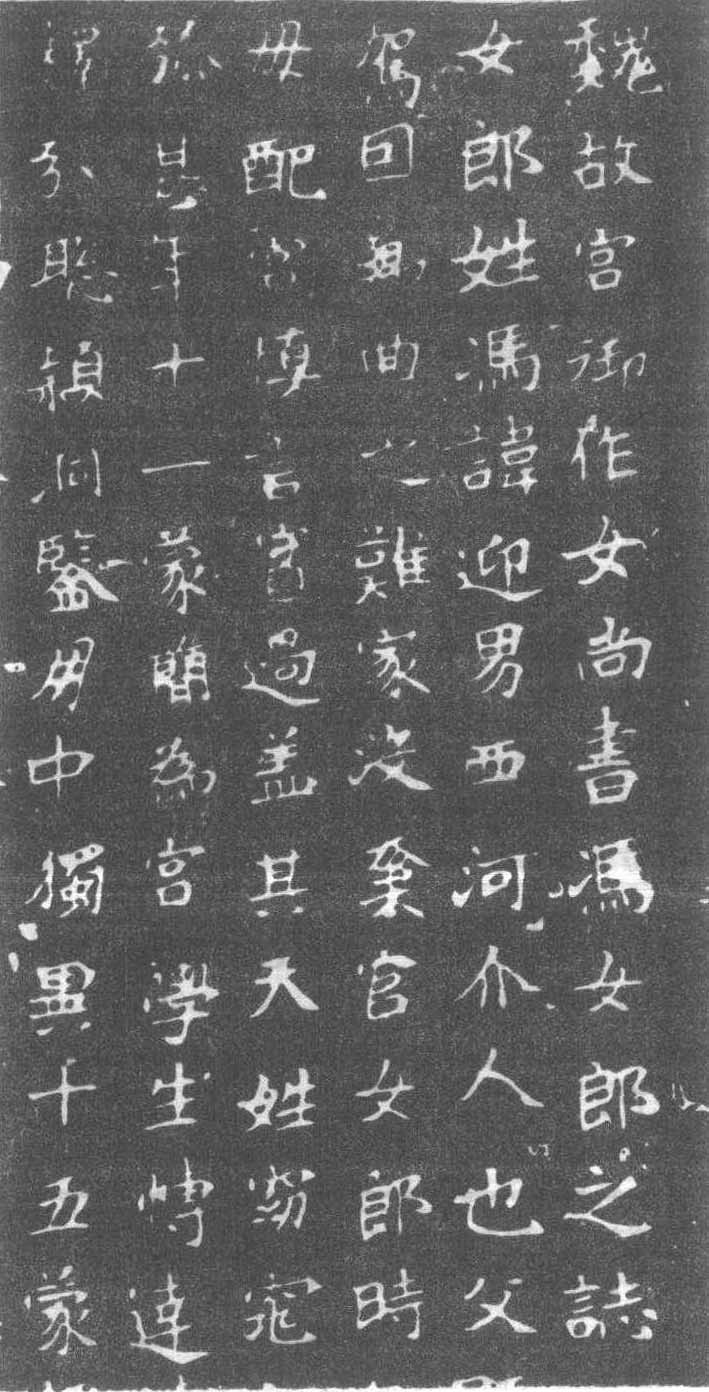 魏故宮御作女尚書馮女郎之誌
女郎姓馮諱迎男西河介人也父
鴐回無曲之難家沒奚官女郎時
母配宮慎言窖過蓋其天姓窈窕
孫其年十一蒙簡為宮學生博達
分聰穎洞鑒毋中獨異十五蒙